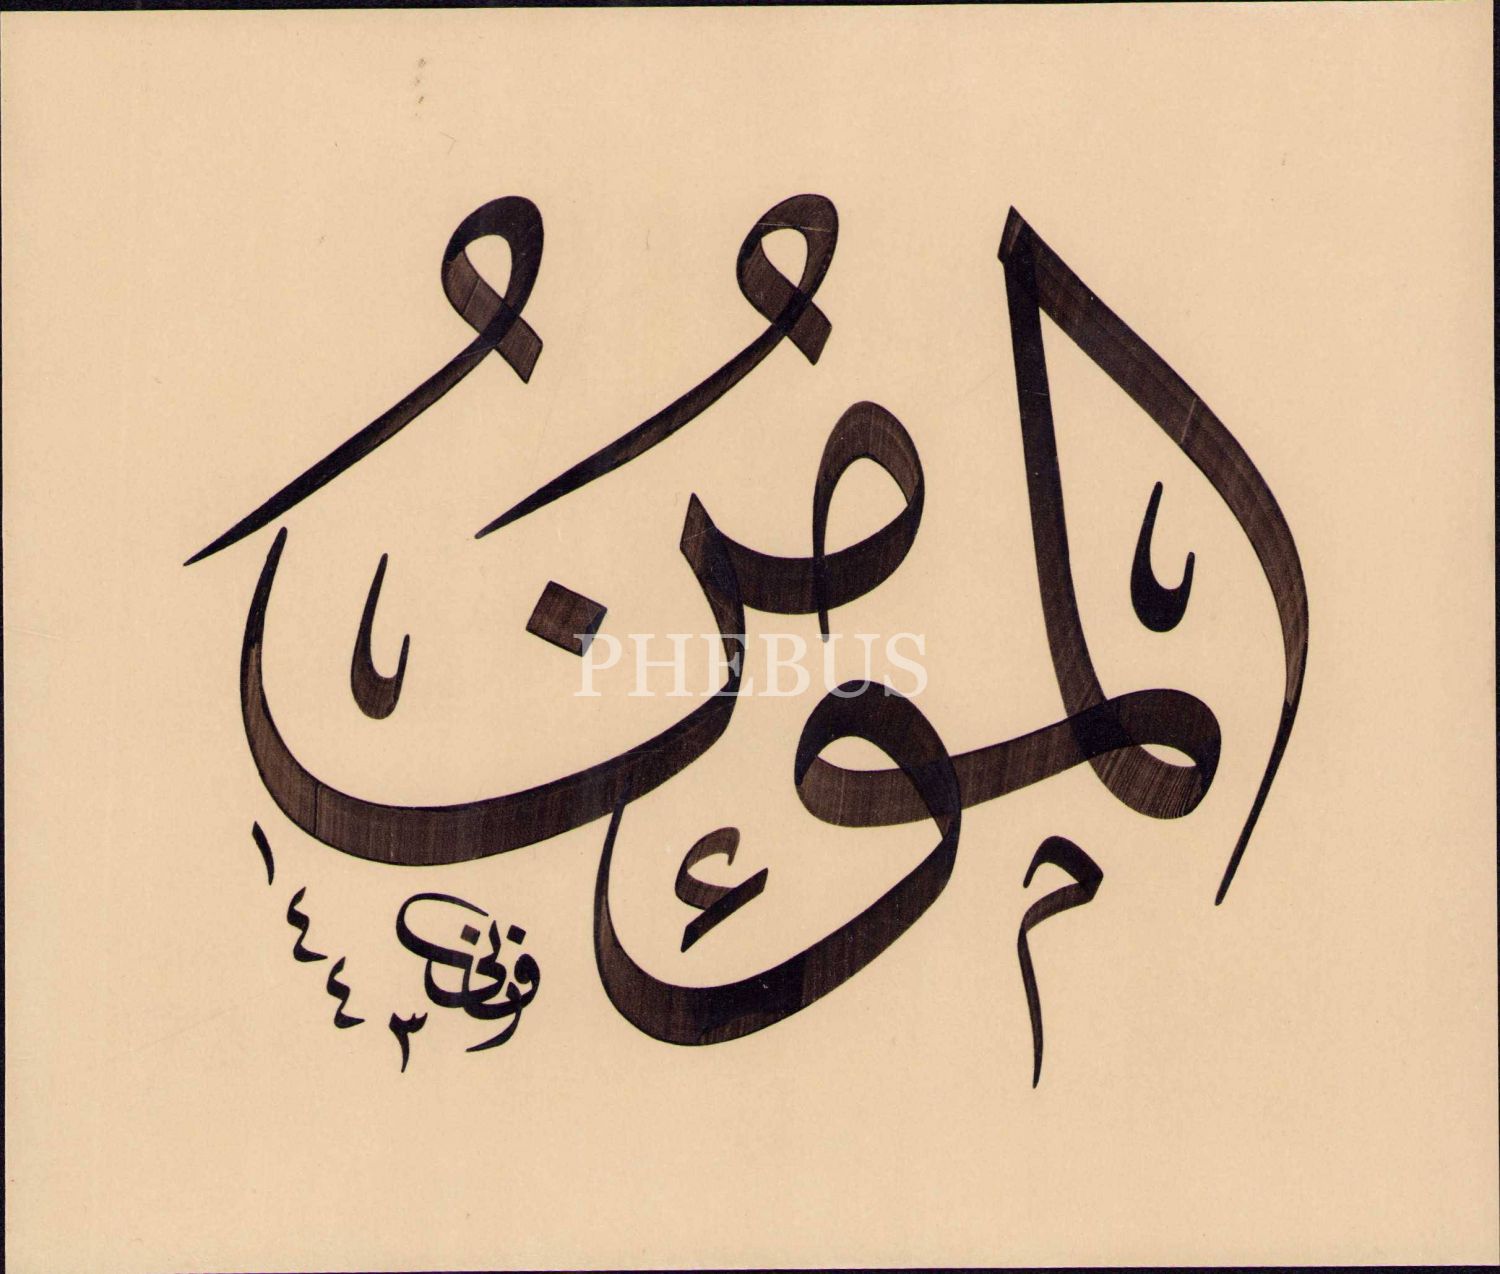 المؤمنُ
PHEBUS
١٤٤٣